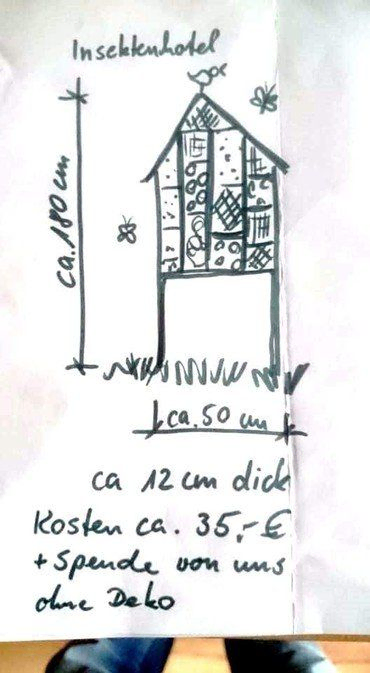 Insektenhotel
ca. 180 cm
ca. 50 cm
ca 12 cm dick
Kosten ca. 35,- €
+ Spende von uns
ohne Deko